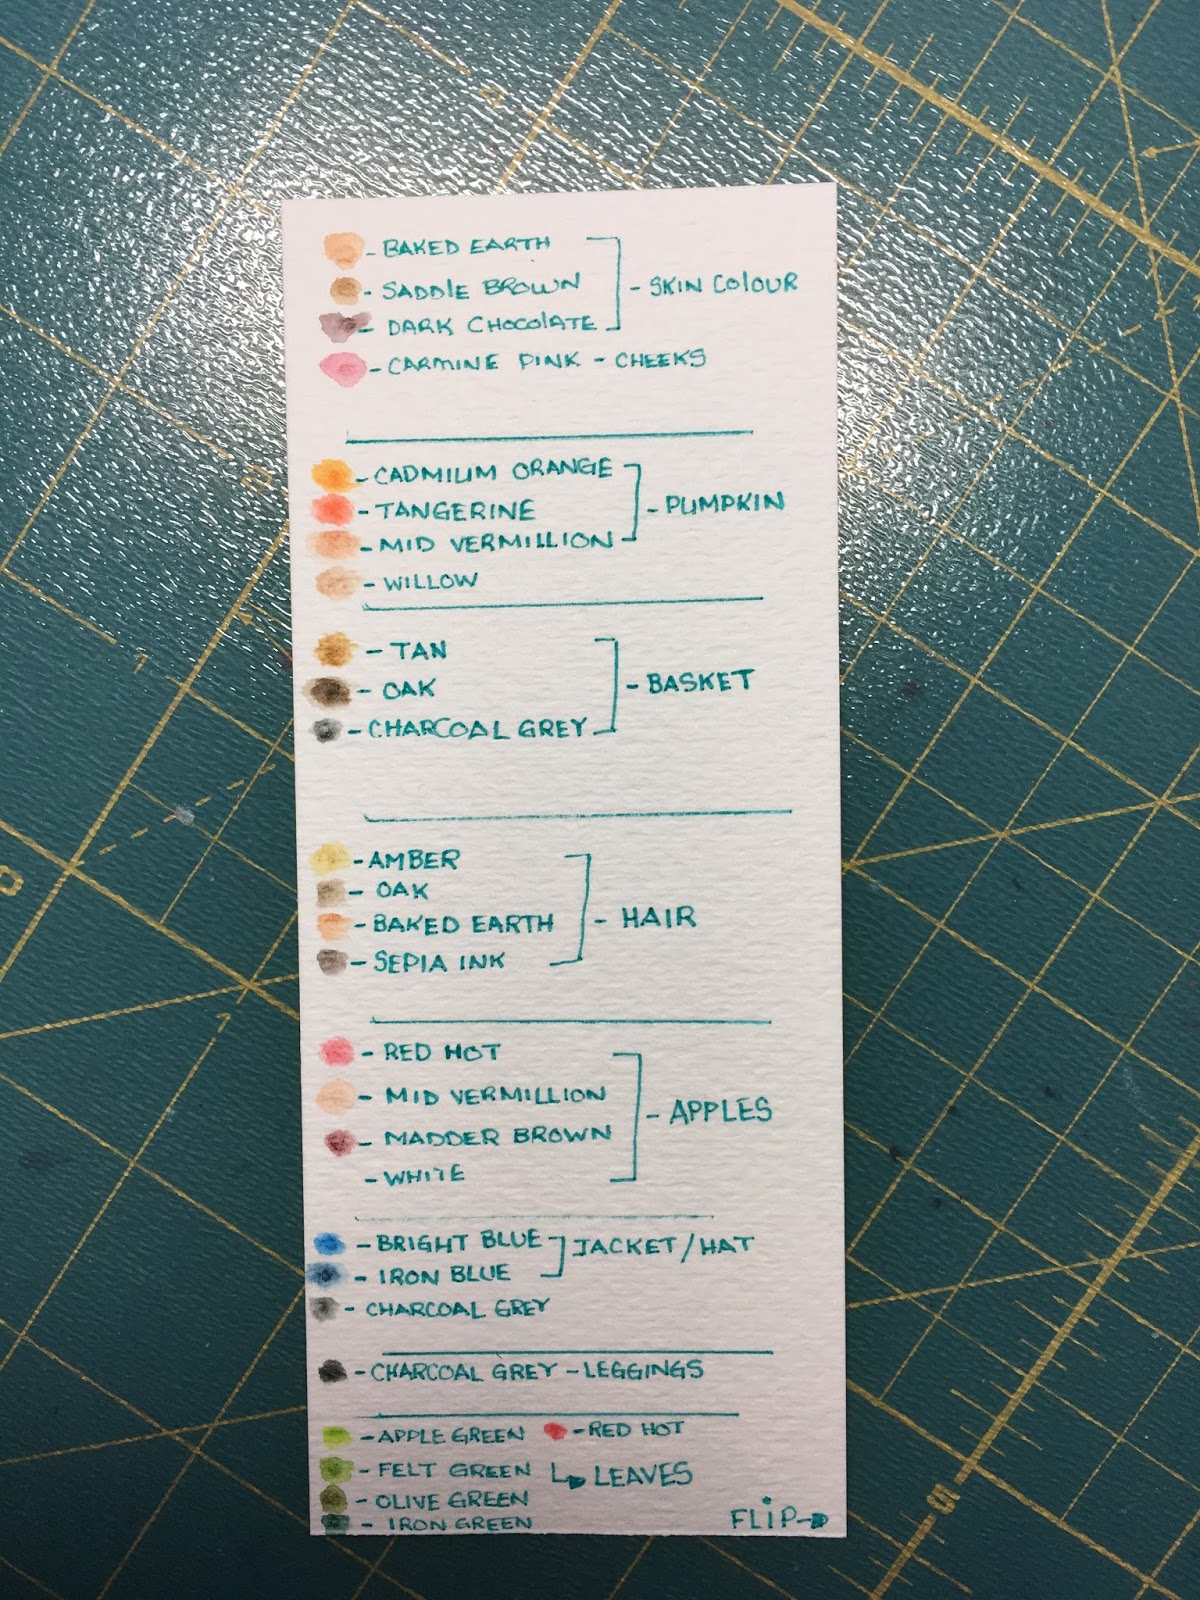 - BAKED EARTH
- SADDLE BROWN - SKIN COLOUR
- DARK CHOCOLATE
- CARMINE PINK - CHEEKS
- CADMIUM ORANGE
- TANGERINE - PUMPKIN
- MID VERMILLION
- WILLOW
- TAN
- OAK - BASKET
- CHARCOAL GREY
- AMBER
- OAK
- BAKED EARTH - HAIR
- SEPIA INK
- RED HOT
- MID VERMILLION - APPLES
- MADDER BROWN
- WHITE
- BRIGHT BLUE JACKET/HAT
- IRON BLUE
- CHARCOAL GREY
- CHARCOAL GREY - LEGGINGS
- APPLE GREEN - RED HOT
- FELT GREEN LEAVES
- OLIVE GREEN
- IRON GREEN FLIP